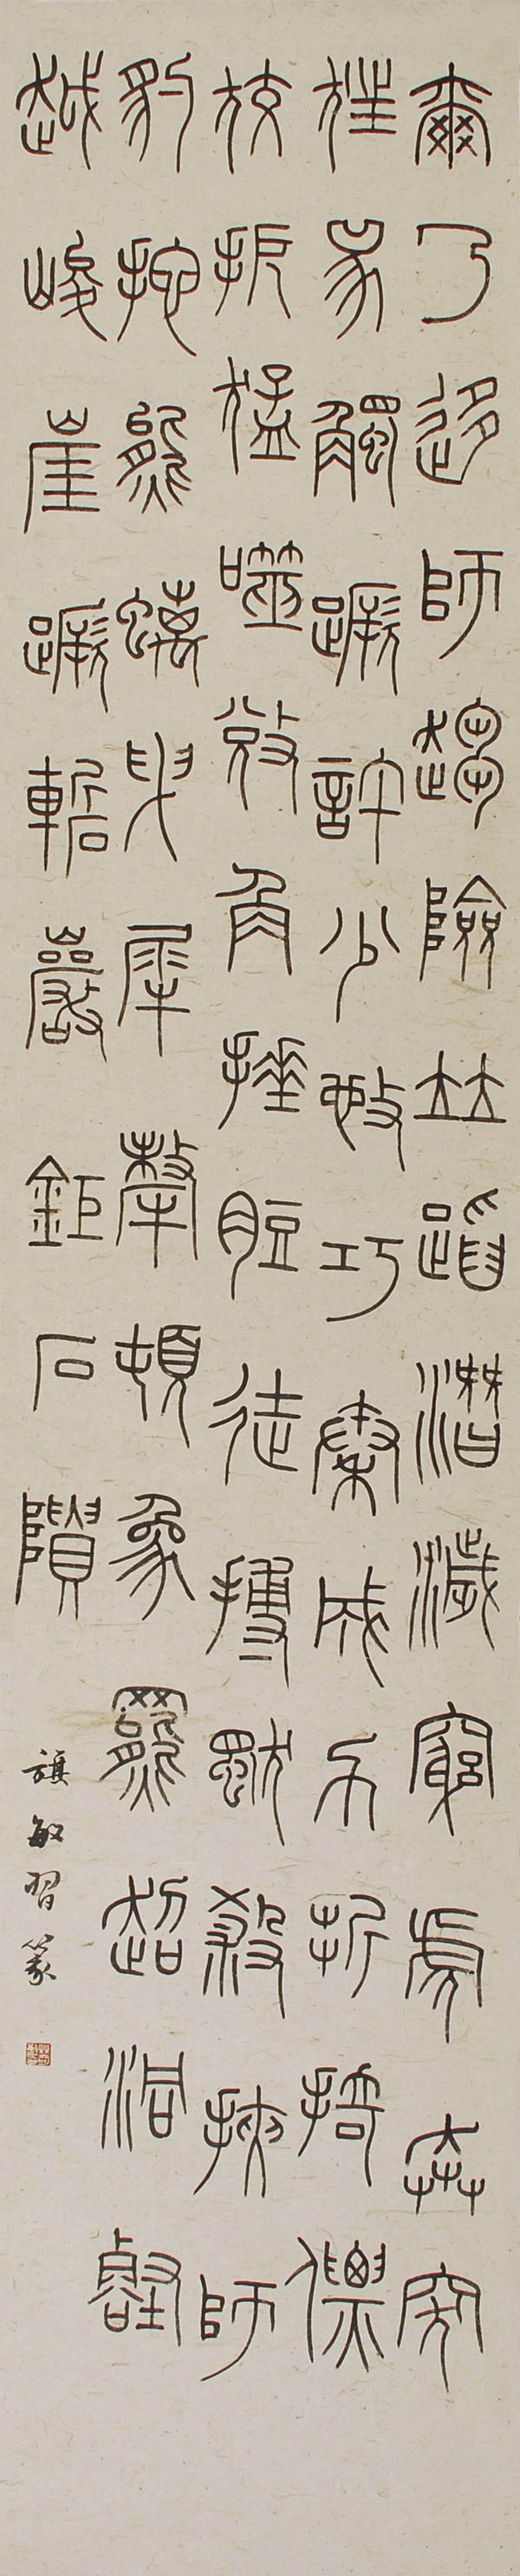 爾乃移師趨險竝蹈潛穢窮虎奔突
狂兕觸蹶許少施巧秦成力折掎僄
狡扼猛噬脫角挫脰徒搏獨殺挾師
豹拖熊螭曳犀犛頓象羆超洞壑
越峻崖蹶嶄巖鉅石隤
敏習篆